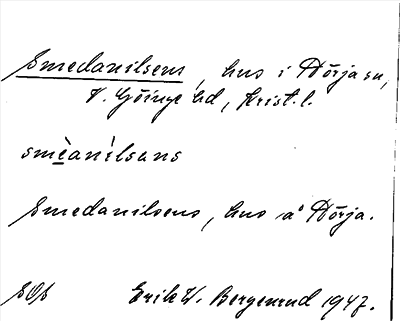 Smedanilsens, hus i Hörja sn,
V. Göinge hd, Krist. l.
smèanìlsans
Smedanilsens, hus å Hörja.
Erik W. Bergenrud 1947.